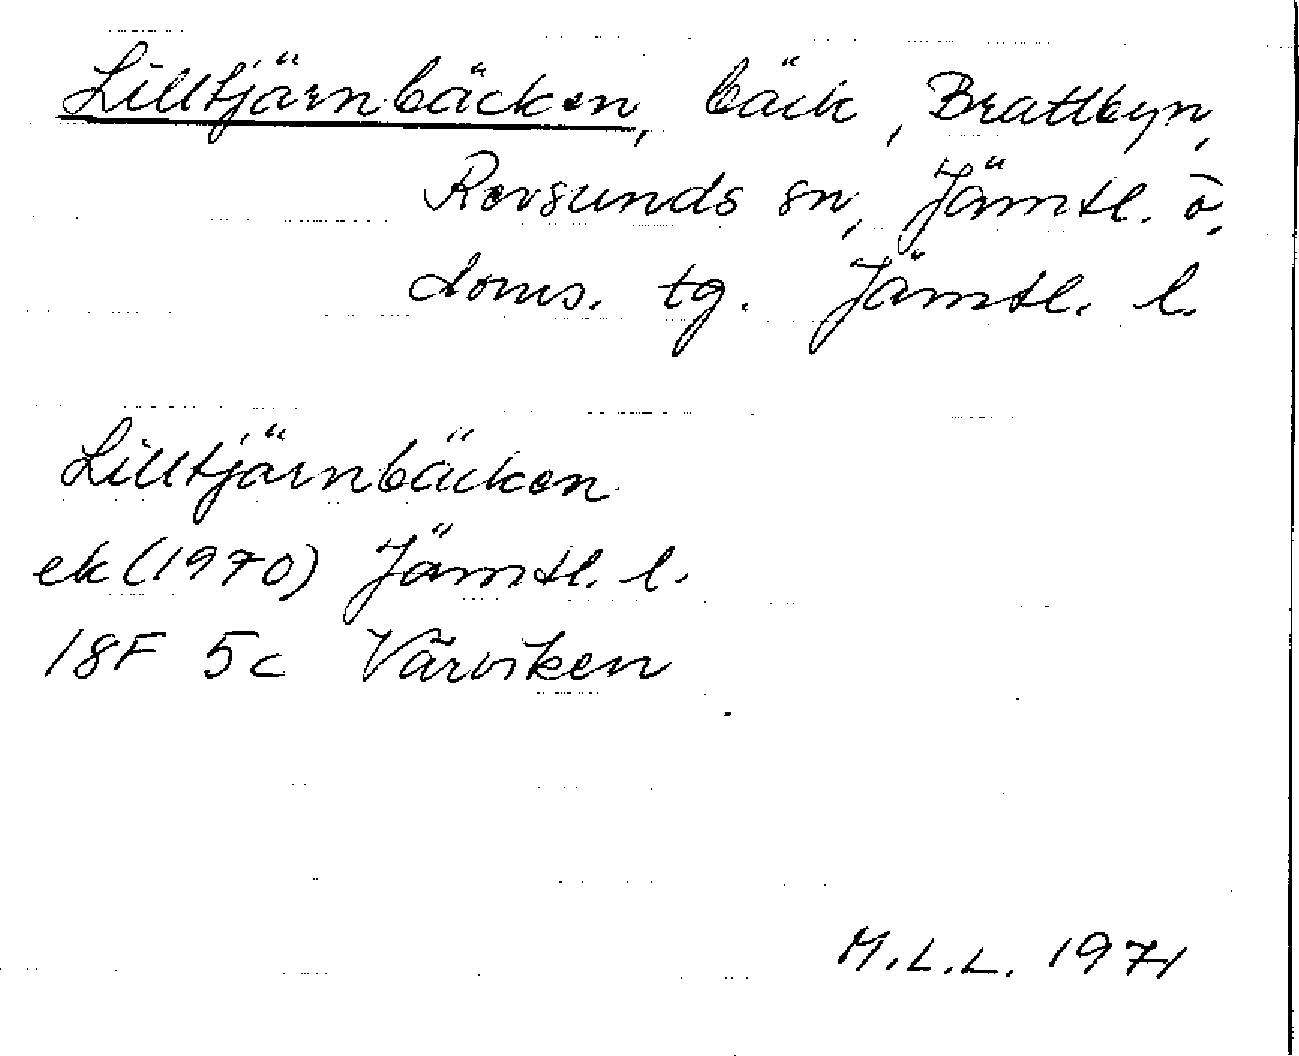 Lilltjärnbäcken, bäck, Brattbyn,
Revsunds sn, Jämtl. ö.
doms. tg. Jämtl. l.
Lilltjärnbäcken
ek (1970) Jämtl. l.
18F 5c Värviken
M.L.L. 1971